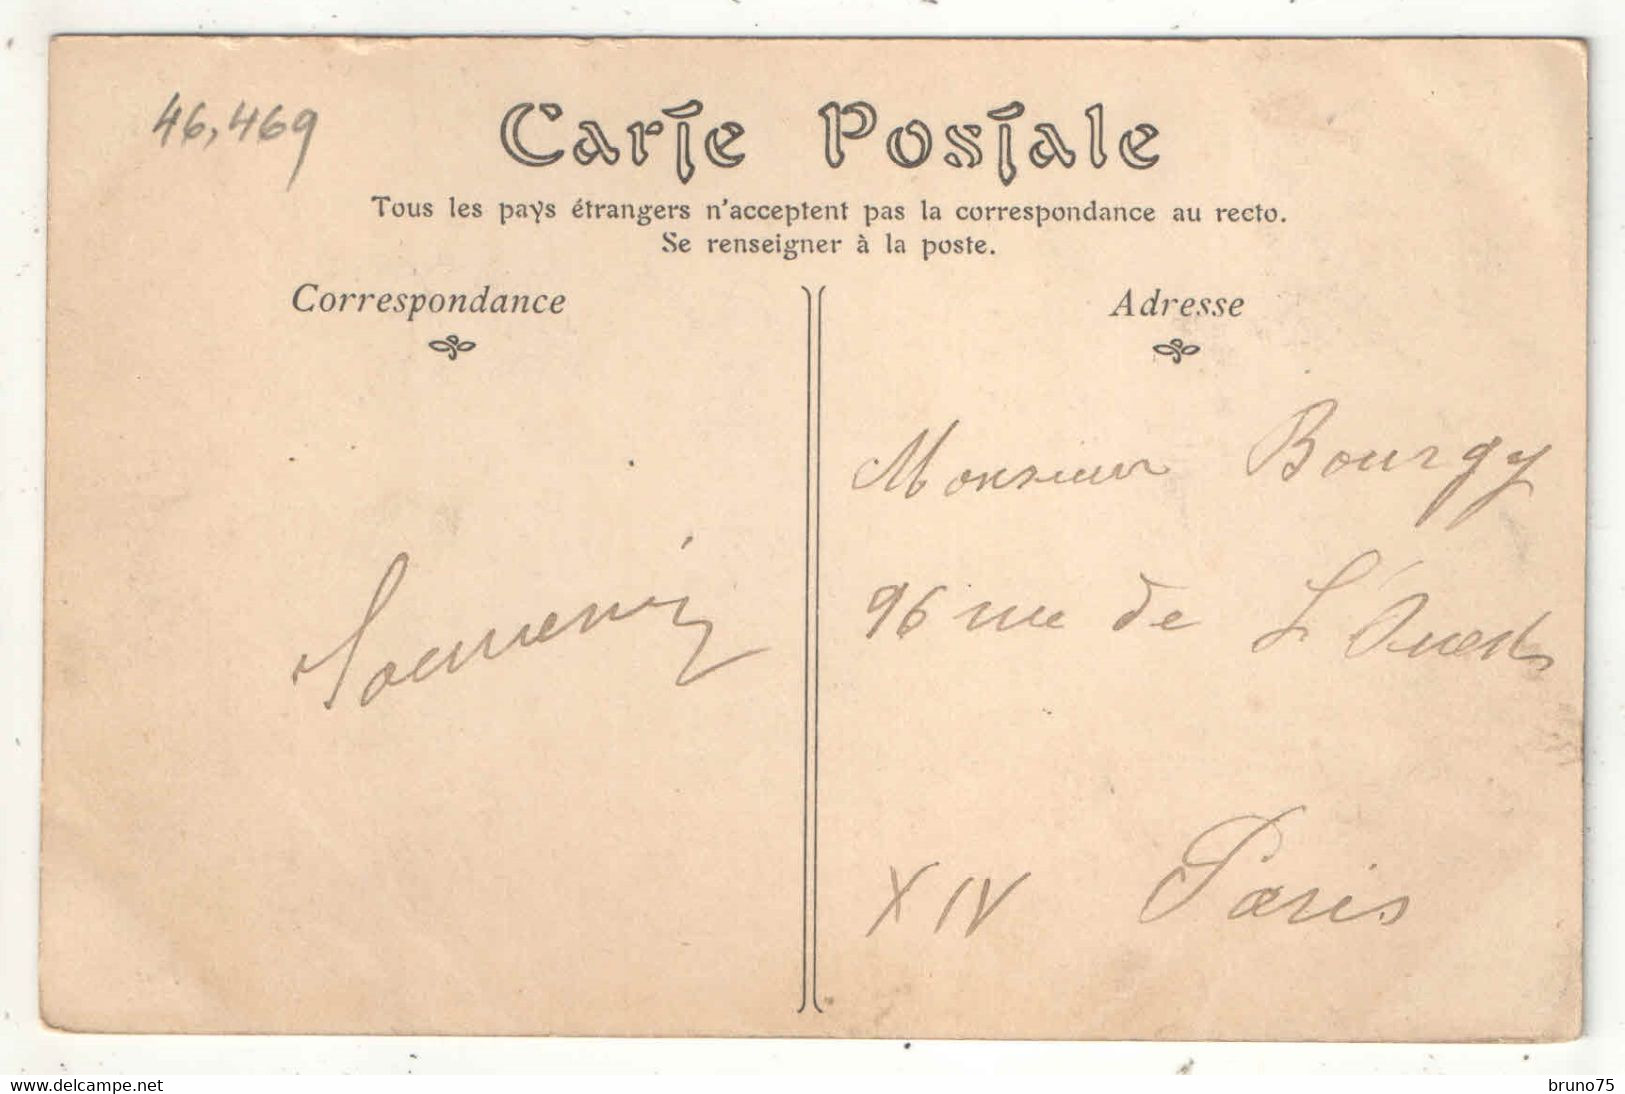 46,469
Carte Postale
Tous les pays étrangers n'acceptent pas la correspondance au recto.
Se renseigner à la poste.
Correspondance
Adresse
Souvenir
Monsieur Bourgy
96 rue de L'Ouest
XIV Paris
www.delcampe.net
bruno75